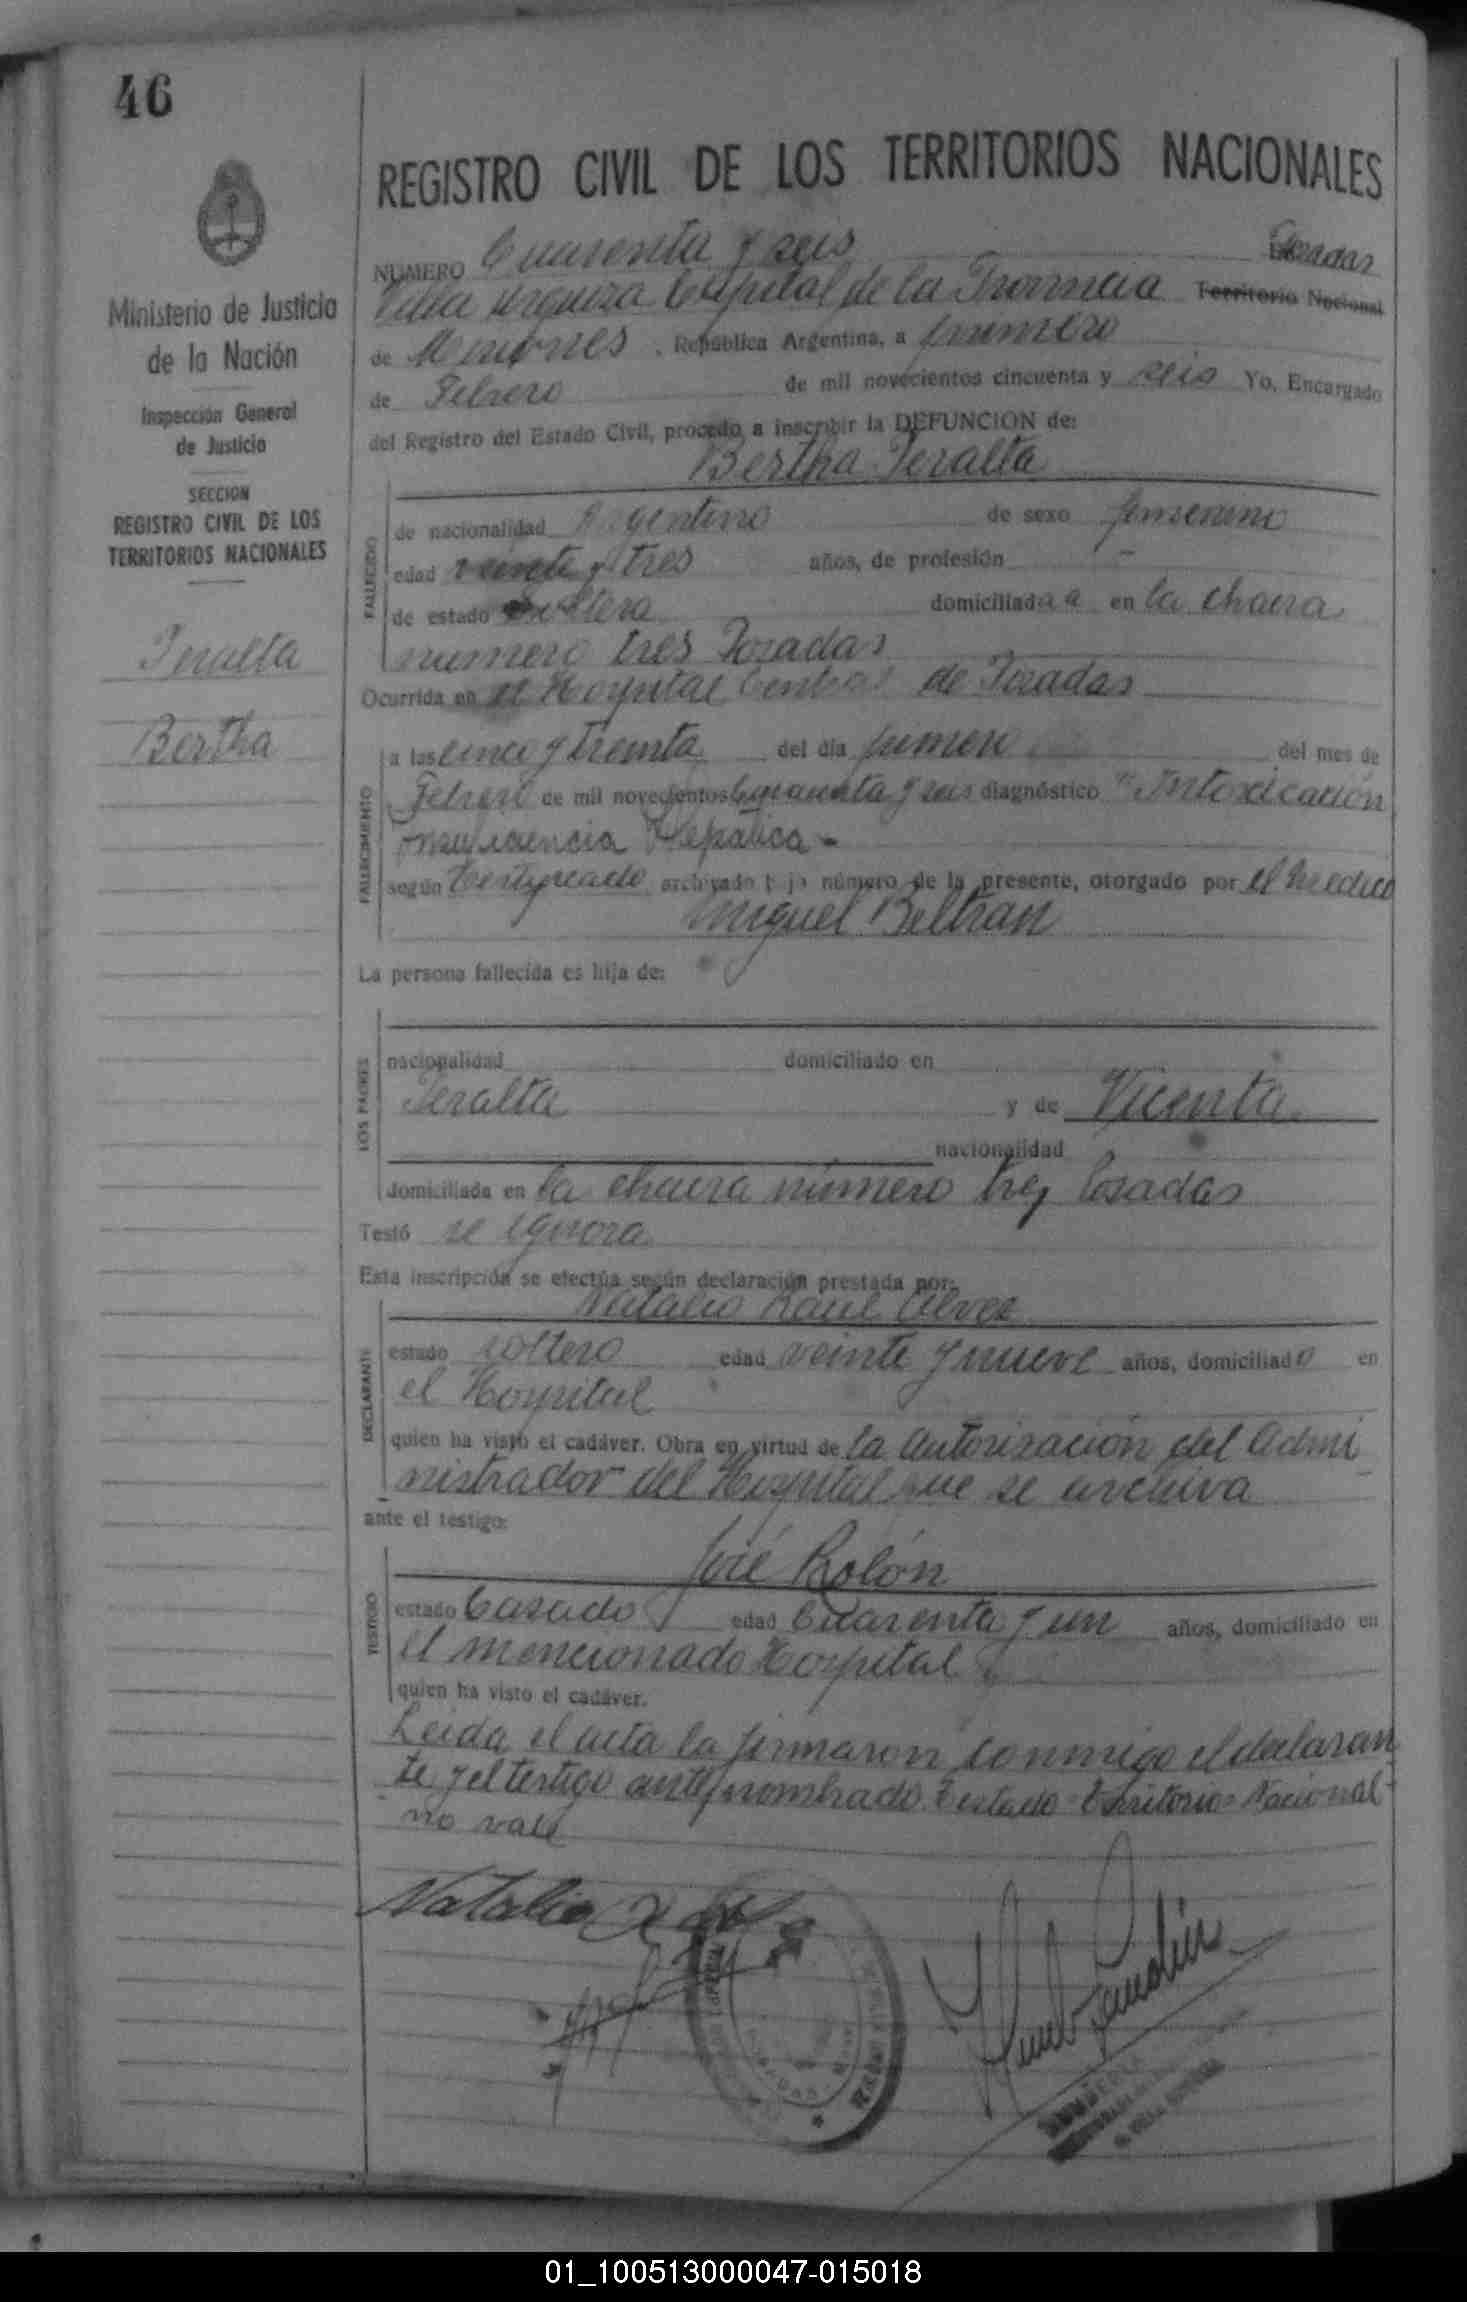 46
REGISTRO CIVIL DE LOS TERRITORIOS NACIONALES
Ministerio de Justicia
de la Nación
Inspección General
de Justicia
SECCION
REGISTRO CIVIL DE LOS
TERRITORIOS NACIONALES
Peralta
Bertha
NUMERO Cuarenta y seis Posadas
Villa Urquiza Capital de la Provincia Territorio Nacional
de Misiones , República Argentina, a primero
de Febrero de mil novecientos cincuenta y seis Yo, Encargado
del Registro del Estado Civil, procedo a inscribir la DEFUNCION de:
Bertha Peralta
FALLECIDO
de nacionalidad Argentina de sexo femenino
edad veinte y tres años, de profesión -
de estado soltera domiciliada en la chacra
numero tres Posadas
Ocurrida en el Hospital Central de Posadas
FALLECIMIENTO
a las cinco y treinta del día primero del mes de
Febrero de mil novecientos cincuenta y seis diagnóstico "Intoxicación
insuficiencia Hepática -
según Certificado archivado bajo número de la presente, otorgado por el medico
Miguel Beltran
La persona fallecida es hija de:
LOS PADRES
nacionalidad domiciliado en
Peralta y de Vicenta
nacionalidad
domiciliada en la chacra número tres Posadas
Testó se ignora
Esta inscripción se efectúa según declaración prestada por:
Natalio Raul Alvez
DECLARANTE
estado soltero edad veinte y nueve años, domiciliado en
el Hospital
quien ha visto el cadáver. Obra en virtud de la autorización del Admi
nistrador del Hospital que se archiva
ante el testigo:
José Rolón
TESTIGO
estado Casado edad Cuarenta y un años, domiciliado en
el mencionado Hospital
quien ha visto el cadáver.
Leida el acta la firmaron conmigo el declaran
te y el testigo antes nombrado. Testado = Territorio = Nacional -
no vale
Natalio
01_100513000047-015018